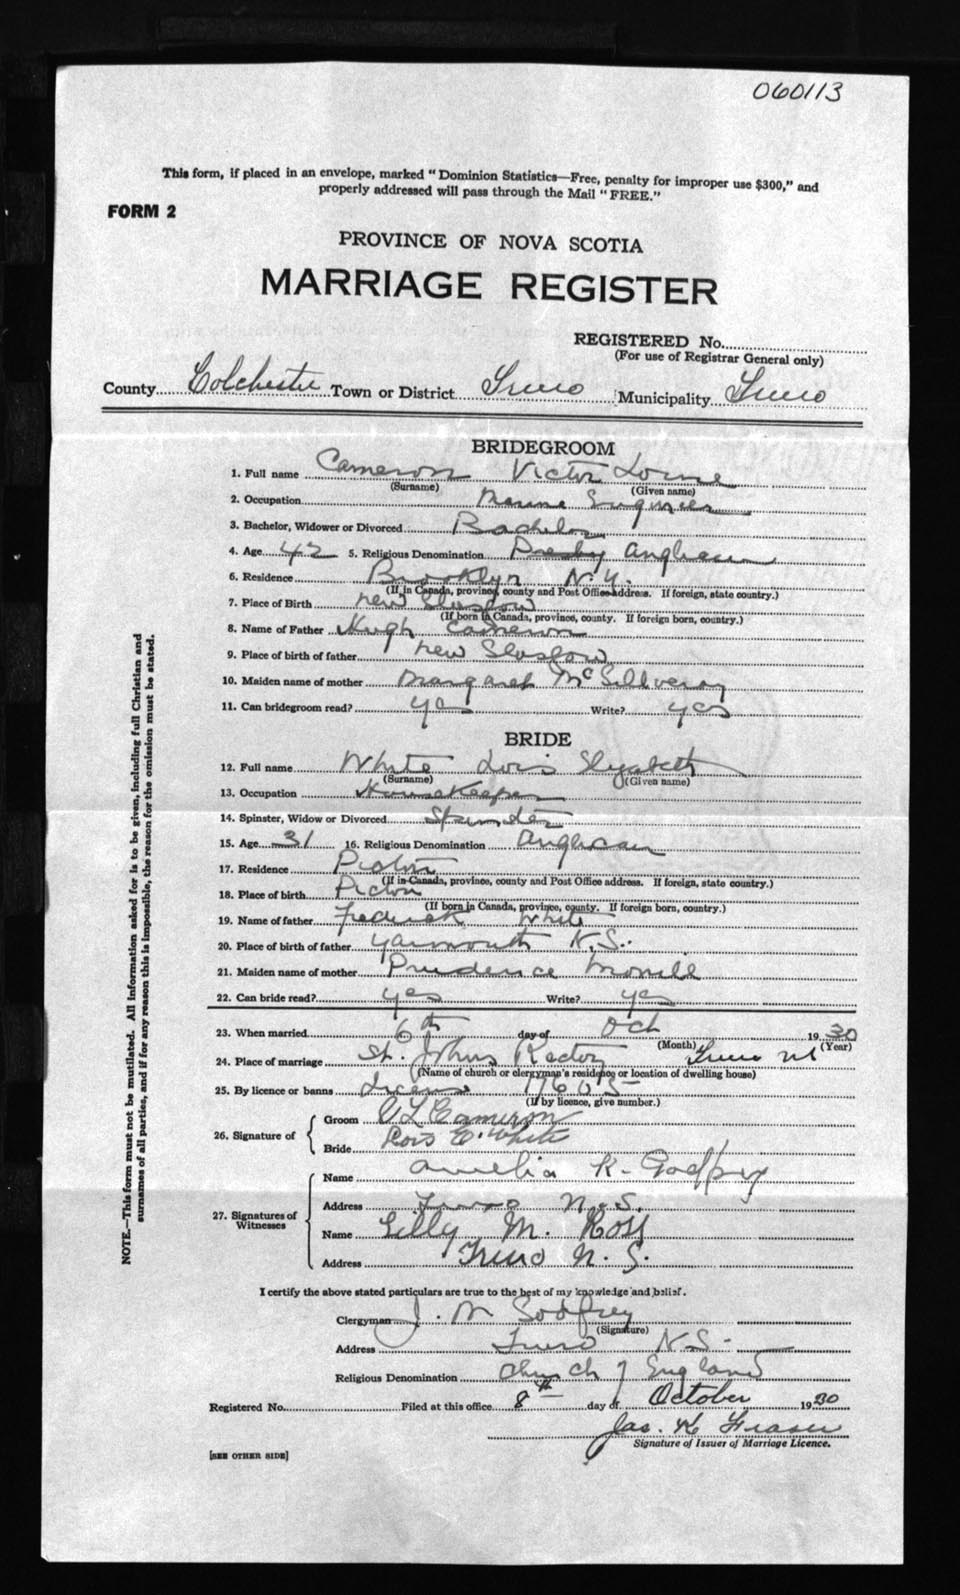 060113
This form, if placed in an envelope, marked "Dominion Statistics—Free, penalty for improper use $300," and
properly addressed will pass through the Mail "FREE."
FORM 2
PROVINCE OF NOVA SCOTIA
MARRIAGE REGISTER
REGISTERED No.
(For use of Registrar General only)
County Colchester Town or District Truro Municipality Truro
BRIDEGROOM
1. Full name Cameron Victor Lorne
(Surname) (Given name)
2. Occupation Marine Engineer
3. Bachelor, Widower or Divorced Bachelor
4. Age 42 5. Religious Denomination Presby Anglican
6. Residence Brooklyn N.Y.
(If in Canada, province, county and Post Office address. If foreign, state country.)
7. Place of Birth New Glasgow
(If born in Canada, province, county. If foreign born, country.)
8. Name of Father Hugh Cameron
9. Place of birth of father New Glasgow
10. Maiden name of mother Margaret
11. Can bridegroom read? yes Write? yes
BRIDE
12. Full name White Lois Elizabeth
(Surname) (Given name)
13. Occupation Housekeeper
14. Spinster, Widow or Divorced Spinster
15. Age 31 16. Religious Denomination Anglican
17. Residence Pictou
(If in Canada, province, county and Post Office address. If foreign, state country.)
18. Place of birth Pictou
(If born in Canada, province, county. If foreign born, country.)
19. Name of father Frederick White
20. Place of birth of father Yarmouth N.S.
21. Maiden name of mother Prudence
22. Can bride read? yes Write? yes
23. When married 6th day of Oct 1930
(Month) (Year)
24. Place of marriage St. Johns Rectory Truro NS
(Name of church or clergyman's residence or location of dwelling house)
25. By licence or banns License 17605
(If by licence, give number.)
26. Signature of
Groom V L Cameron
Bride Lois E. White
27. Signatures of Witnesses
Name Amelia K. Godfrey
Address Truro N.S.
Name Lilly M. Ross
Address Truro N.S.
I certify the above stated particulars are true to the best of my knowledge and belief.
Clergyman J. W. Godfrey
(Signature)
Address Truro N.S.
Religious Denomination Church of England
Registered No. Filed at this office 8th day of October 1930
Jas. K Fraser
Signature of Issuer of Marriage Licence.
[SEE OTHER SIDE]
NOTE.—This form must not be mutilated. All information asked for is to be given, including full Christian and
surnames of all parties, and if for any reason this is impossible, the reason for the omission must be stated.